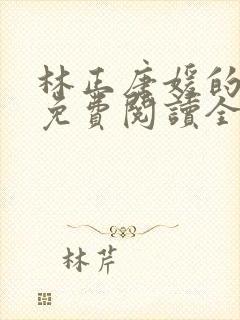 林正唐媛的
免費閱讀全
林芹